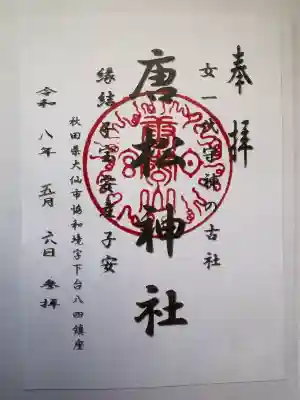 奉拝
女一代守神の古社
唐松神社
縁結子宝安産子安
秋田県大仙市協和境字下台八四鎮座
令和八年五月六日参拝